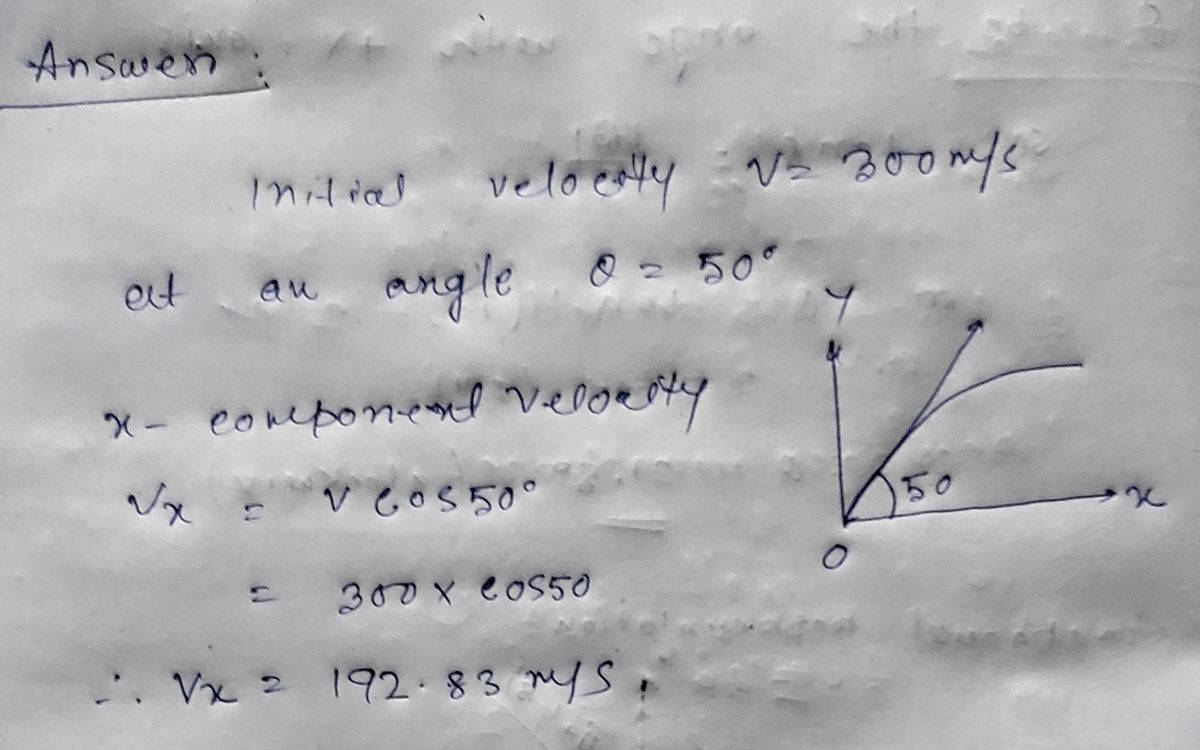 Answer :
Initial velocity V = 300 m/s
at an angle θ = 50°
x - component velocity
Vx = v cos 50°
= 300 x cos50
∴ Vx = 192.83 m/s.
Y
50
x
O